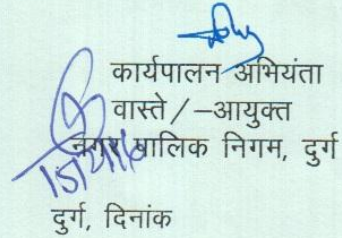 कार्यपालन अभियंता
वास्ते/-आयुक्त
नगर पालिक निगम, दुर्ग
दुर्ग, दिनांक